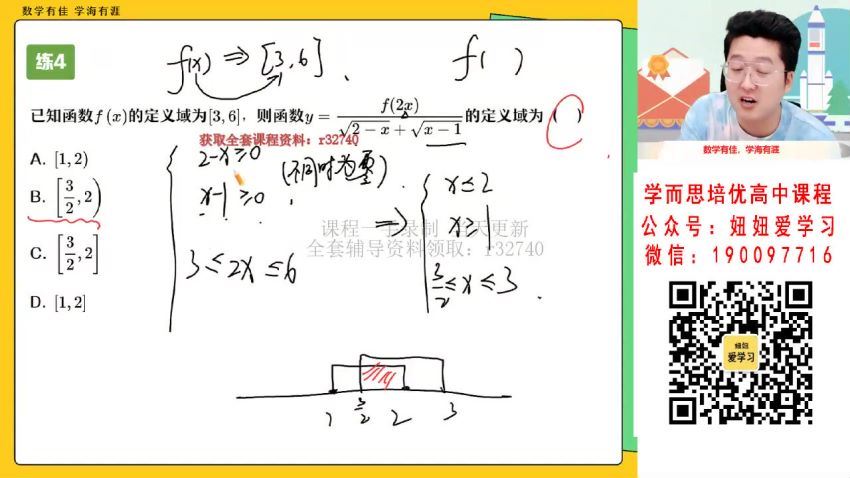 数学有佳 学海有涯
练4
f(x) ⇒ [3,6]
f( )
已知函数f(x)的定义域为[3,6],则函数y=f(2x)/(√(2−x)+√(x−1))的定义域为( )
获取全套课程资料:r32740
A. [1,2)
B. [3/2,2)
C. [3/2,2]
D. [1,2]
2-x≥0
x-1≥0
(不同时为零)
3≤2x≤6
⇒
x≤2
x≥1
3/2≤x≤3
课程一手录制 当天更新
全套辅导资料领取:r32740
1 3/2 2 3
数学有佳,学海有涯
学而思培优高中课程
公众号:妞妞爱学习
微信:190097716
妞妞
爱学习
数学有佳 学海有涯